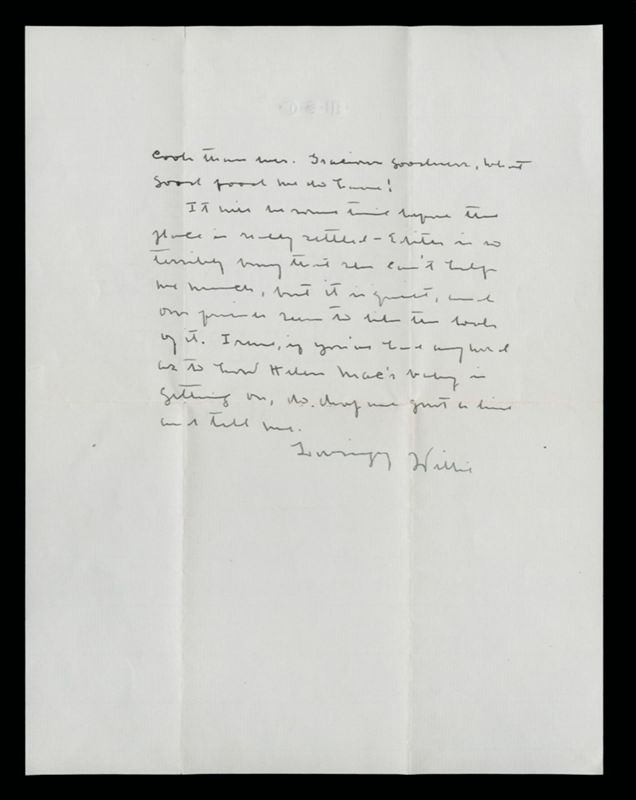 cook than ever. Gracious goodness, what
good food we do have!
It will be some time before the
place is really settled - Edith is so
terribly busy that she can't help
me much, but it is quiet, and
our friends seem to like the looks
of it. Irene, if you've had any word
as to how Helen Mac's baby is
getting on, do drop me just a line
and tell me.
Lovingly Willie